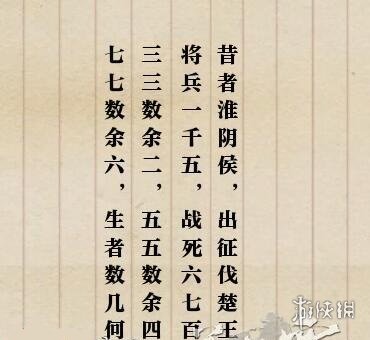 昔者淮阴侯，出征伐楚王
将兵一千五，战死六七百
三三数余二，五五数余四
七七数余六，生者数几何
游侠网